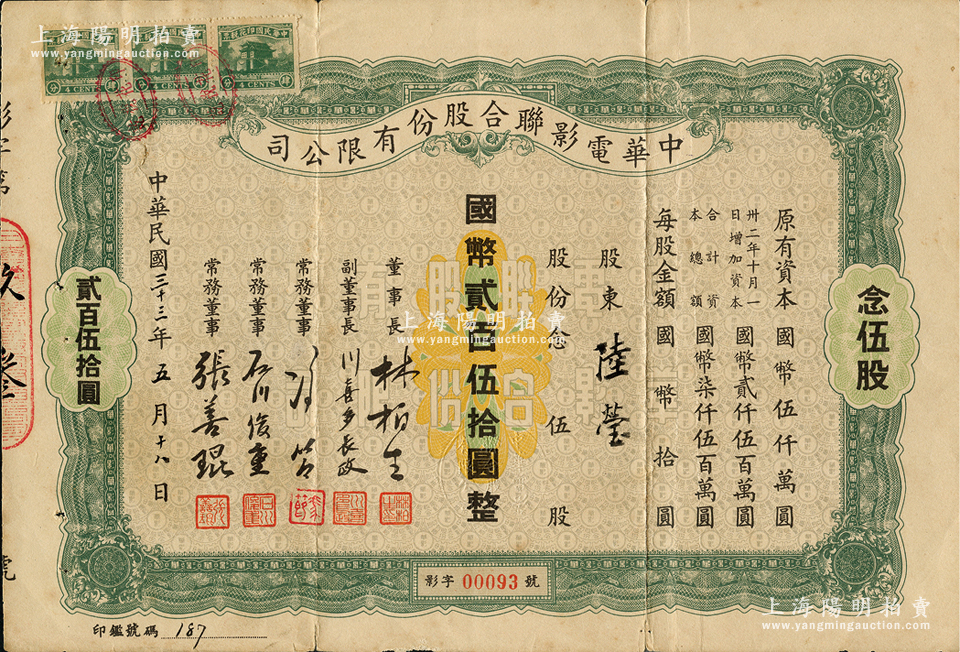 中華民國印花稅票
中華民國印花稅票
中華民國印花稅票
4 CENTS
4 CENTS
4 CENTS
上海陽明拍賣
www.yangmingauction.com
中華電影聯合股份有限公司
念伍股
原有資本 國幣伍仟萬圓
卅二年十月一日增加資本 國幣貳仟伍百萬圓
合計資本總額 國幣柒仟伍百萬圓
每股金額 國幣拾圓
股東 陸瑩
股份念伍股
國幣貳百伍拾圓整
董事長 林柏生
副董事長 川喜多長政
常務董事 馮節
常務董事 石川俊重
常務董事 張善琨
中華民國三十三年五月十八日
貳百伍拾圓
上海陽明拍賣
www.yangmingauction.com
影字 00093 號
印鑑號碼 187
上海陽明拍賣
www.yangmingauction.com